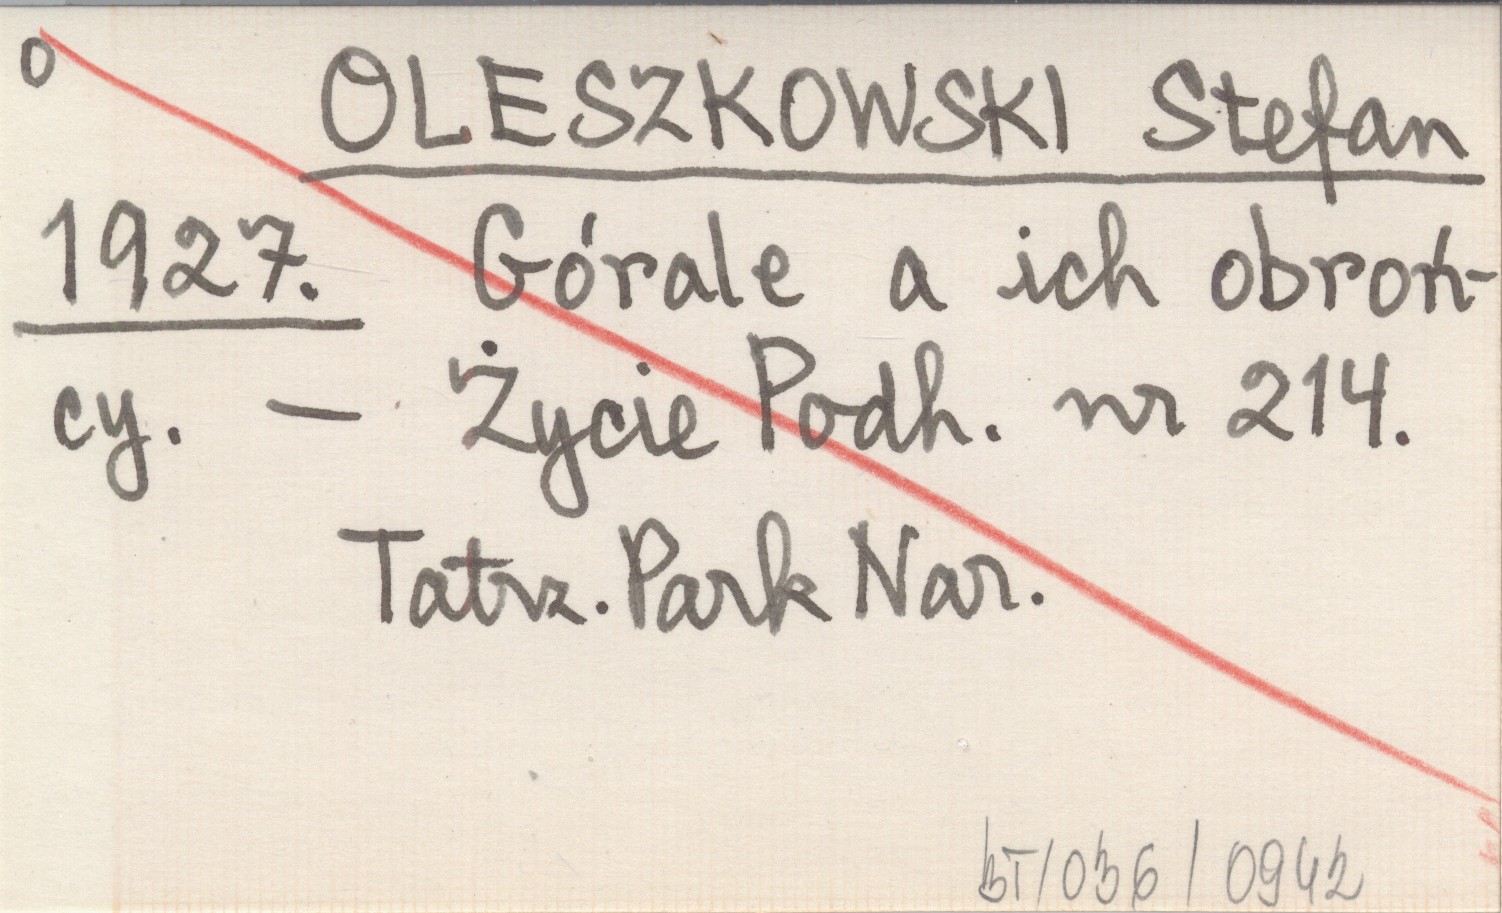 O
OLESZKOWSKI Stefan
1927. Górale a ich obroń-
cy. – Życie Podh. nr 214.
Tatrz. Park Nar.
BT/036/0942